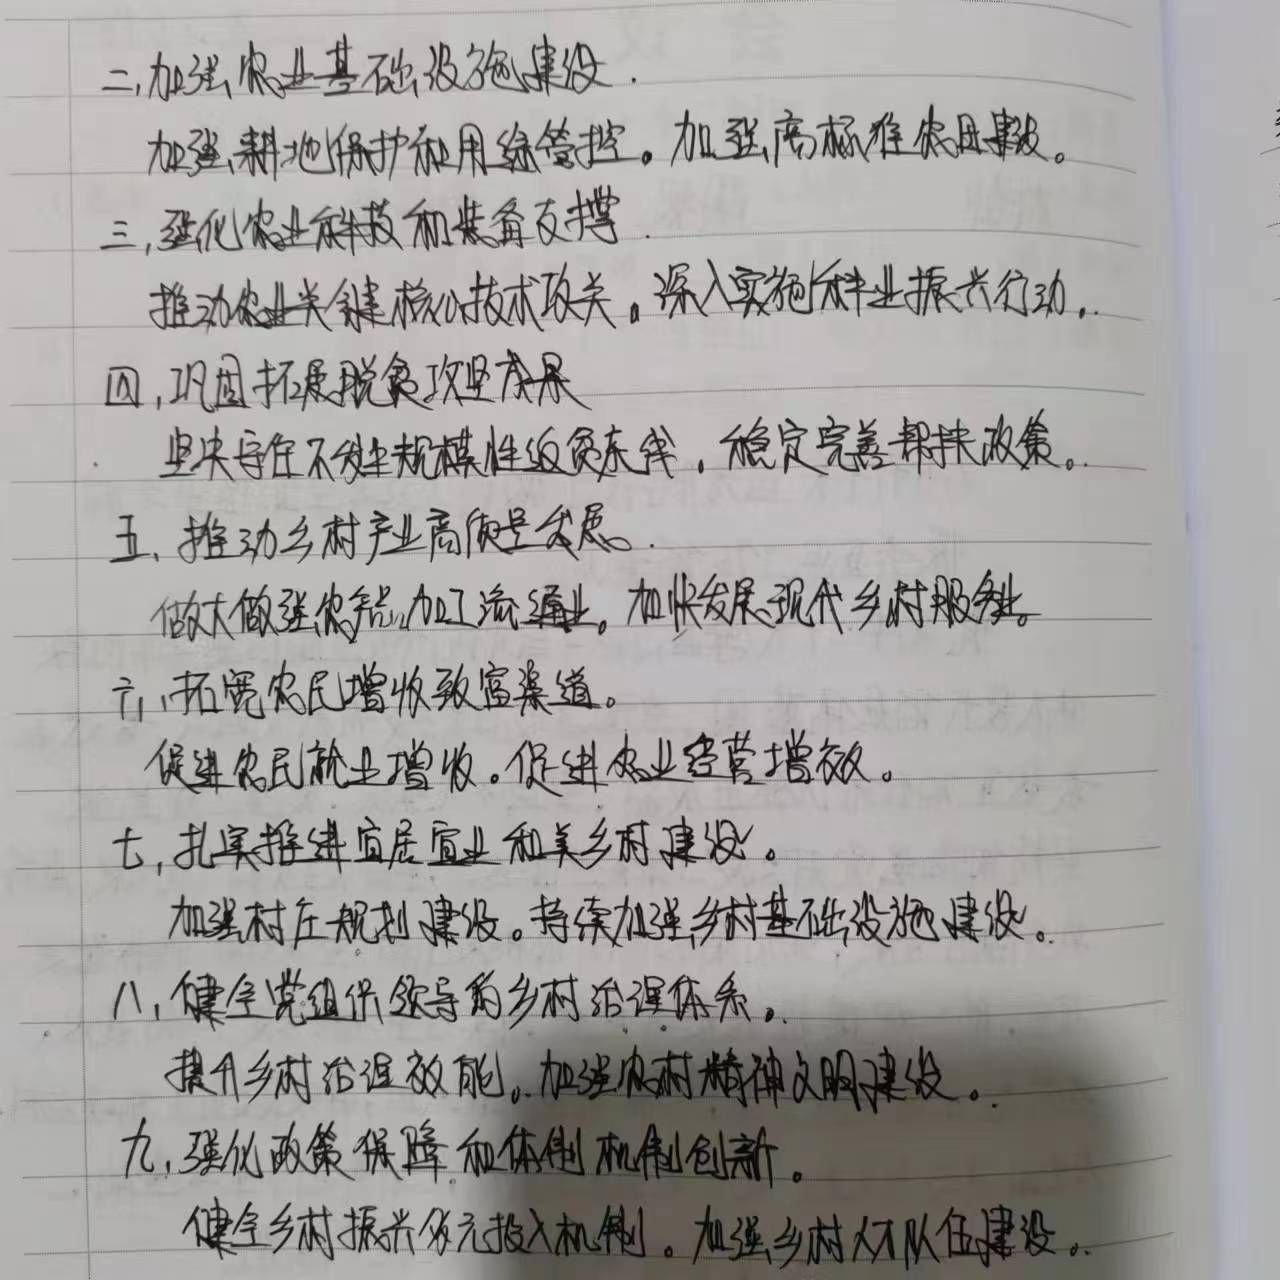 二,加强农业基础设施建设.
加强耕地保护和用综管控。加强高标准农田建设。
三,强化农业科技和装备支撑.
推动农业关键核心技术攻关。深入实施种业振兴行动。
四,巩固拓展脱贫攻坚成果
坚决守住不发生规模性返贫底线。稳定完善帮扶政策。
五、推动乡村产业高质量发展。
做大做强农产品加工流通业。加快发展现代乡村服务业。
六、拓宽农民增收致富渠道。
促进农民就业增收。促进农业经营增效。
七,扎实推进宜居宜业和美乡村建设。
加强村庄规划建设。持续加强乡村基础设施建设。
八,健全党组织领导的乡村治理体系。
提升乡村治理效能。加强农村精神文明建设。
九,强化政策保障和体制机制创新。
健全乡村振兴多元投入机制。加强乡村人才队伍建设。